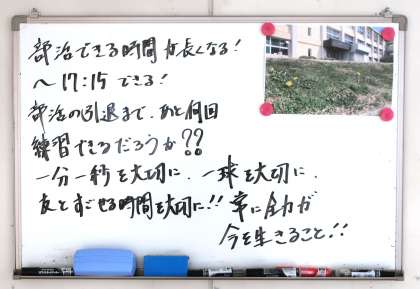 部活できる時間が長くなる!
～17:15できる!
部活の引退まで、あと何回
練習できるだろうか??
一分一秒を大切に、一球を大切に、
友とすごせる時間を大切に!! 常に全力が
今を生きること!!